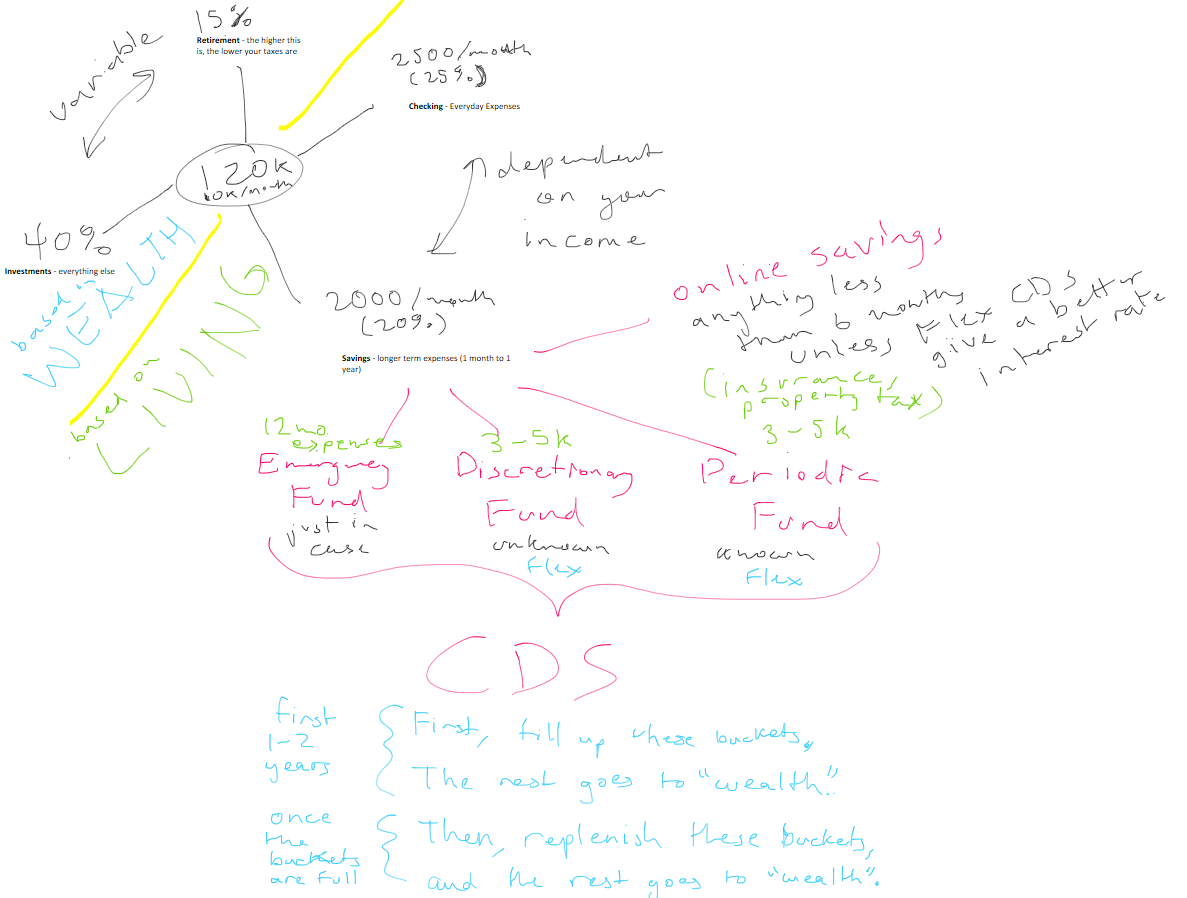 15%
Retirement - the higher this
is, the lower your taxes are
variable
2500/month
(25%)
Checking - Everyday Expenses
120K
10K/month
dependent
on your
income
40%
Investments - everything else
based in
WEALTH
based on
LIVING
2000/month
(20%)
Savings - longer term expenses (1 month to 1
year)
online savings
anything less
than 6 months
unless Flex CDS
give a better
interest rate
(insurance,
property tax)
3-5k
12 mo.
expenses
Emergency
Fund
just in
case
3-5k
Discretionary
Fund
unknown
Flex
Periodic
Fund
known
Flex
CDS
first
1-2
years
First, fill up these buckets,
The rest goes to "wealth".
once
the
buckets
are full
Then, replenish these buckets,
and the rest goes to "wealth".